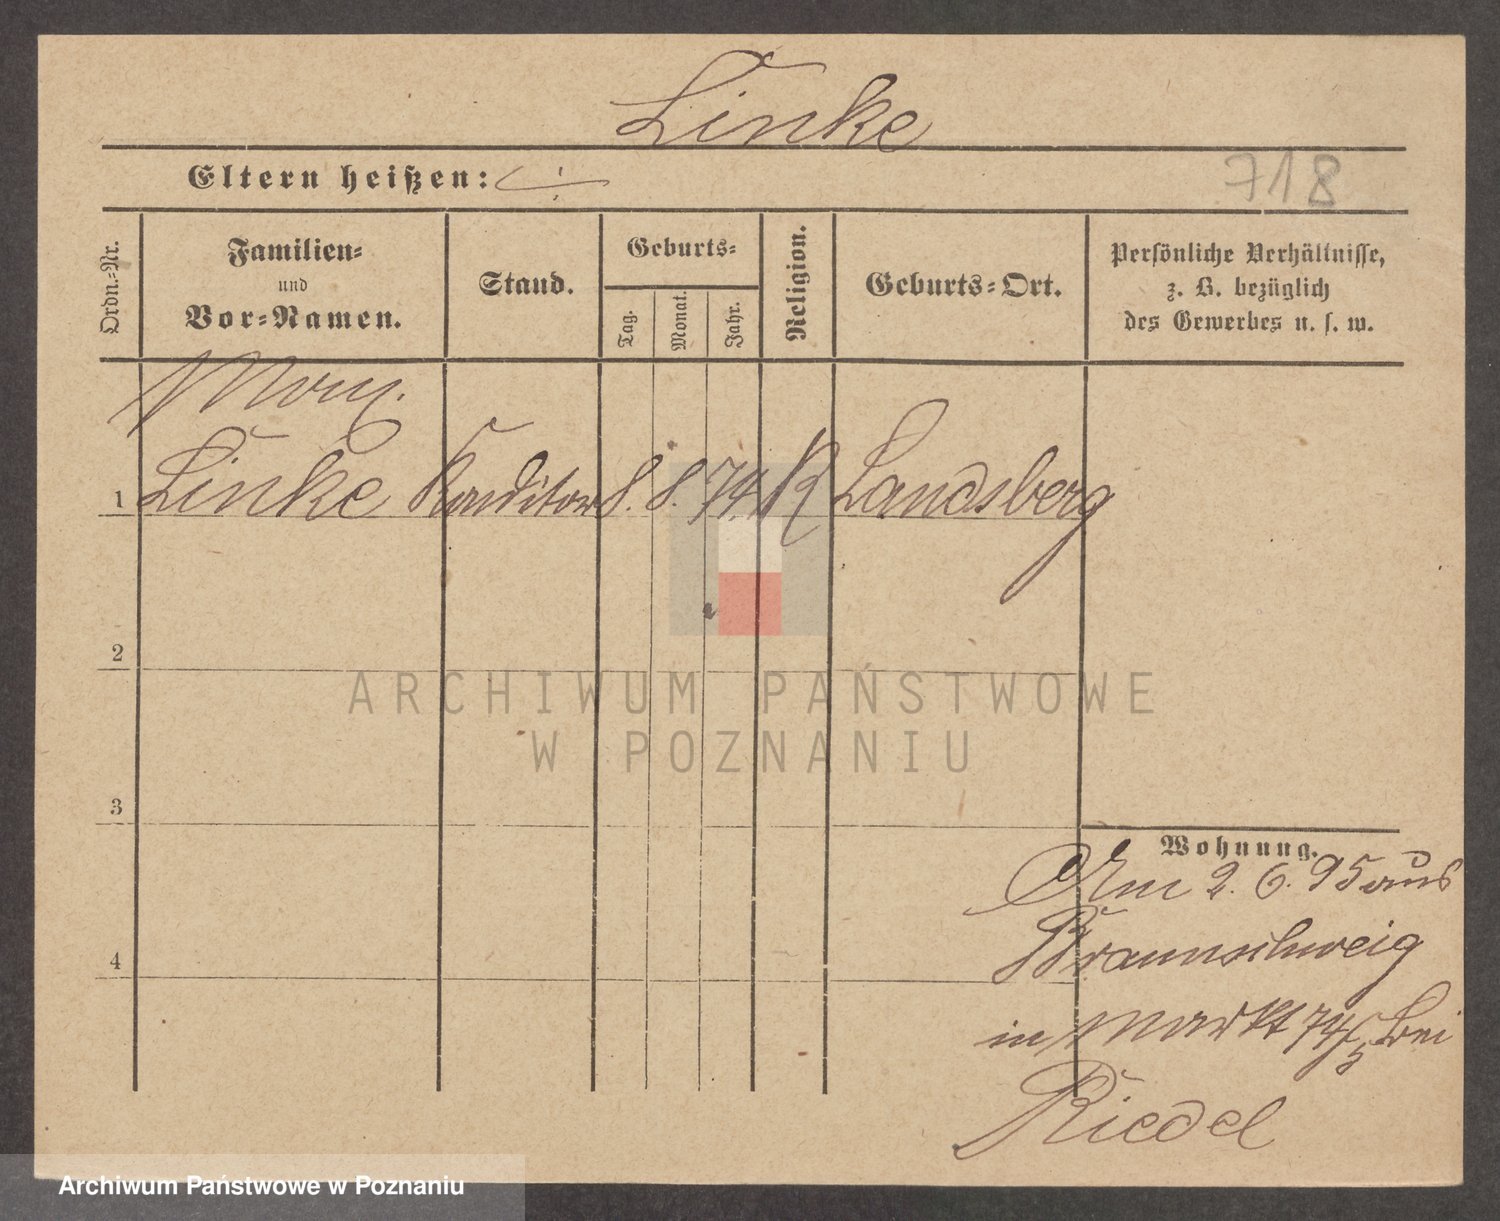 Linke
Eltern heißen: ./.
718
Ordn.-Nr.
Familien-
und
Vor-Namen.
Stand.
Geburts-
Tag.
Monat.
Jahr.
Religion.
Geburts-Ort.
Persönliche Verhältnisse,
z. B. bezüglich
des Gewerbes u. s. w.
1 Linke Konditor 8. 8. 74 K Landsberg
2
3
4
Wohnung.
Am 2. 6. 95 aus
Braunschweig
in Markt 74/5 bei
Riedel
ARCHIWUM PAŃSTWOWE
W POZNANIU
Archiwum Państwowe w Poznaniu